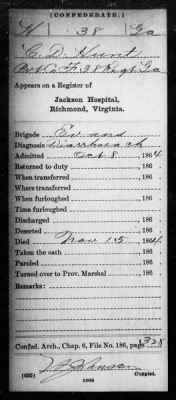 (CONFEDERATE.)
H | 38 | Ga
C. D. Hunt
Pvt Co H, 38 Regt Ga
Appears on a Register of
Jackson Hospital,
Richmond, Virginia.
Brigade Evans
Diagnosis Diarrhoea ch
Admitted Oct 8, 1864.
Returned to duty , 186 .
When transferred , 186 .
Where transferred
When furloughed , 186 .
Time furloughed
Discharged , 186 .
Deserted , 186 .
Died Nov 15, 1864.
Taken the oath , 186 .
Paroled , 186 .
Turned over to Prov. Marshal , 186 .
Remarks:
Confed. Arch., Chap. 6, File No. 186, page 328
(635) Copyist.